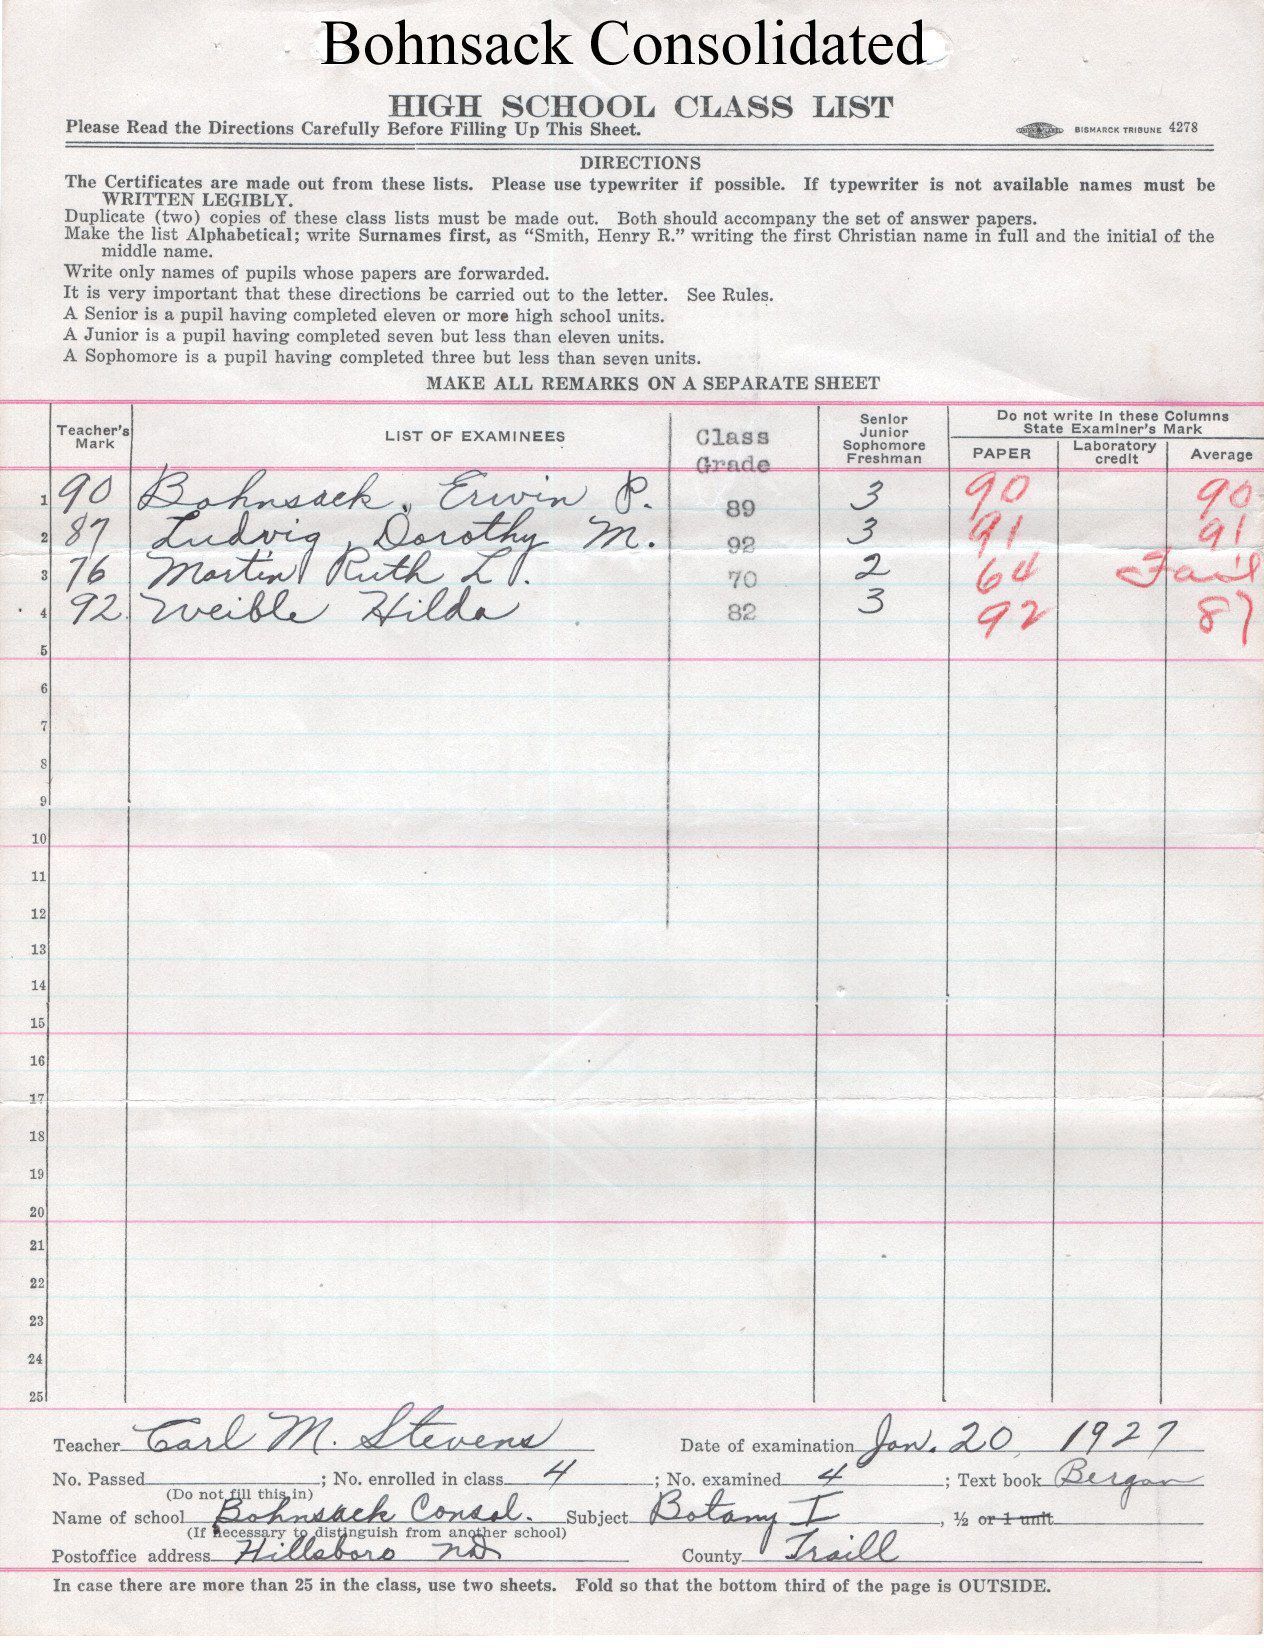 Bohnsack Consolidated
HIGH SCHOOL CLASS LIST
Please Read the Directions Carefully Before Filling Up This Sheet. BISMARCK TRIBUNE 4278
DIRECTIONS
The Certificates are made out from these lists. Please use typewriter if possible. If typewriter is not available names must be
WRITTEN LEGIBLY.
Duplicate (two) copies of these class lists must be made out. Both should accompany the set of answer papers.
Make the list Alphabetical; write Surnames first, as “Smith, Henry R.” writing the first Christian name in full and the initial of the
middle name.
Write only names of pupils whose papers are forwarded.
It is very important that these directions be carried out to the letter. See Rules.
A Senior is a pupil having completed eleven or more high school units.
A Junior is a pupil having completed seven but less than eleven units.
A Sophomore is a pupil having completed three but less than seven units.
MAKE ALL REMARKS ON A SEPARATE SHEET
Teacher's Mark LIST OF EXAMINEES Class Grade Senior Junior Sophomore Freshman Do not write in these Columns State Examiner's Mark PAPER Laboratory credit Average
1 90 Bohnsack, Erwin P. 89 3 90 90
2 87 Ludvig, Dorothy M. 92 3 91 91
3 76 Martin, Ruth L. 70 2 64 Fail
4 92 Weible Hilda 82 3 92 87
5
6
7
8
9
10
11
12
13
14
15
16
17
18
19
20
21
22
23
24
25
Teacher Carl M. Stevens Date of examination Jan. 20, 1927
No. Passed ; No. enrolled in class 4 ; No. examined 4 ; Text book Bergan
(Do not fill this in)
Name of school Bohnsack Consol. Subject Botany I , ½ or 1 unit
(If necessary to distinguish from another school)
Postoffice address Hillsboro ND County Traill
In case there are more than 25 in the class, use two sheets. Fold so that the bottom third of the page is OUTSIDE.